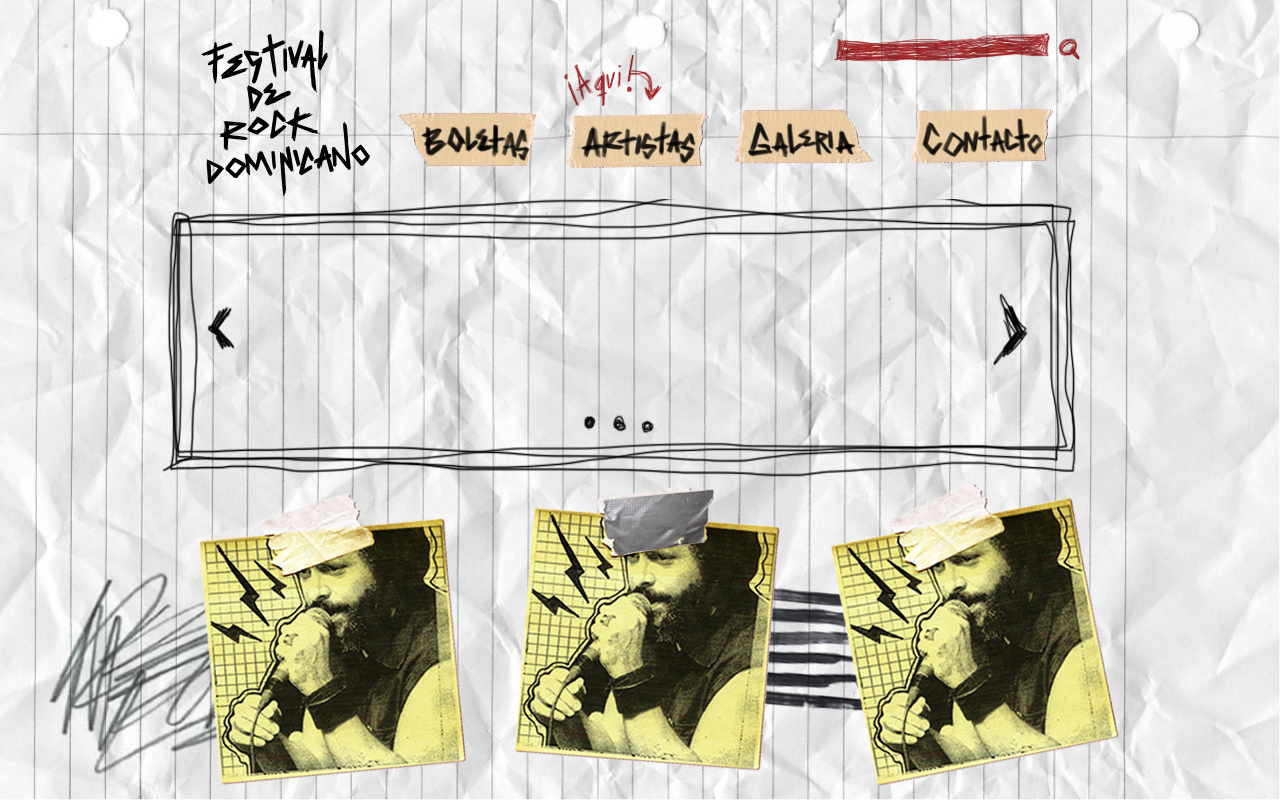 FESTIVAL
DE
ROCK
DOMINICANO
¡Aqui!
BOLETAS
ARTISTAS
GALERIA
CONTACTO